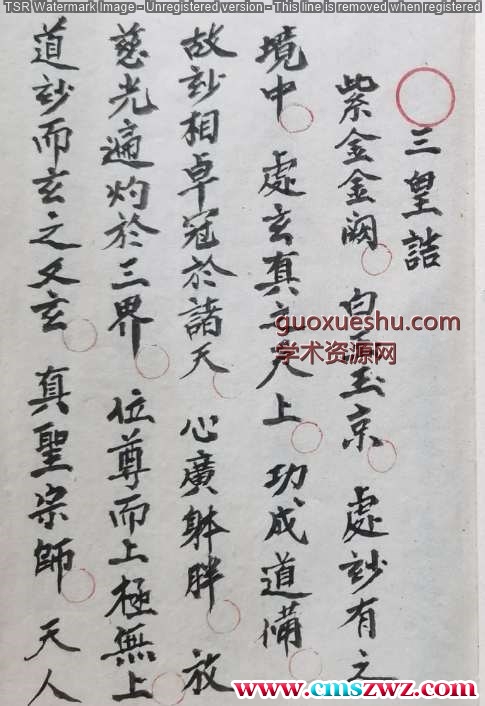 TSR Watermark Image - Unregistered version - This line is removed when registered
三皇誥
紫金金闕 白玉玉京 處玅有之
境中 處玄真之天上 功成道備
故玅相卓冠於諸天 心廣躰胖 放
慈光遍灼於三界 位尊而上極無上
道玅而玄之又玄 真聖宗師 天人
guoxueshu.com
学术资源网
www.cmszwz.com